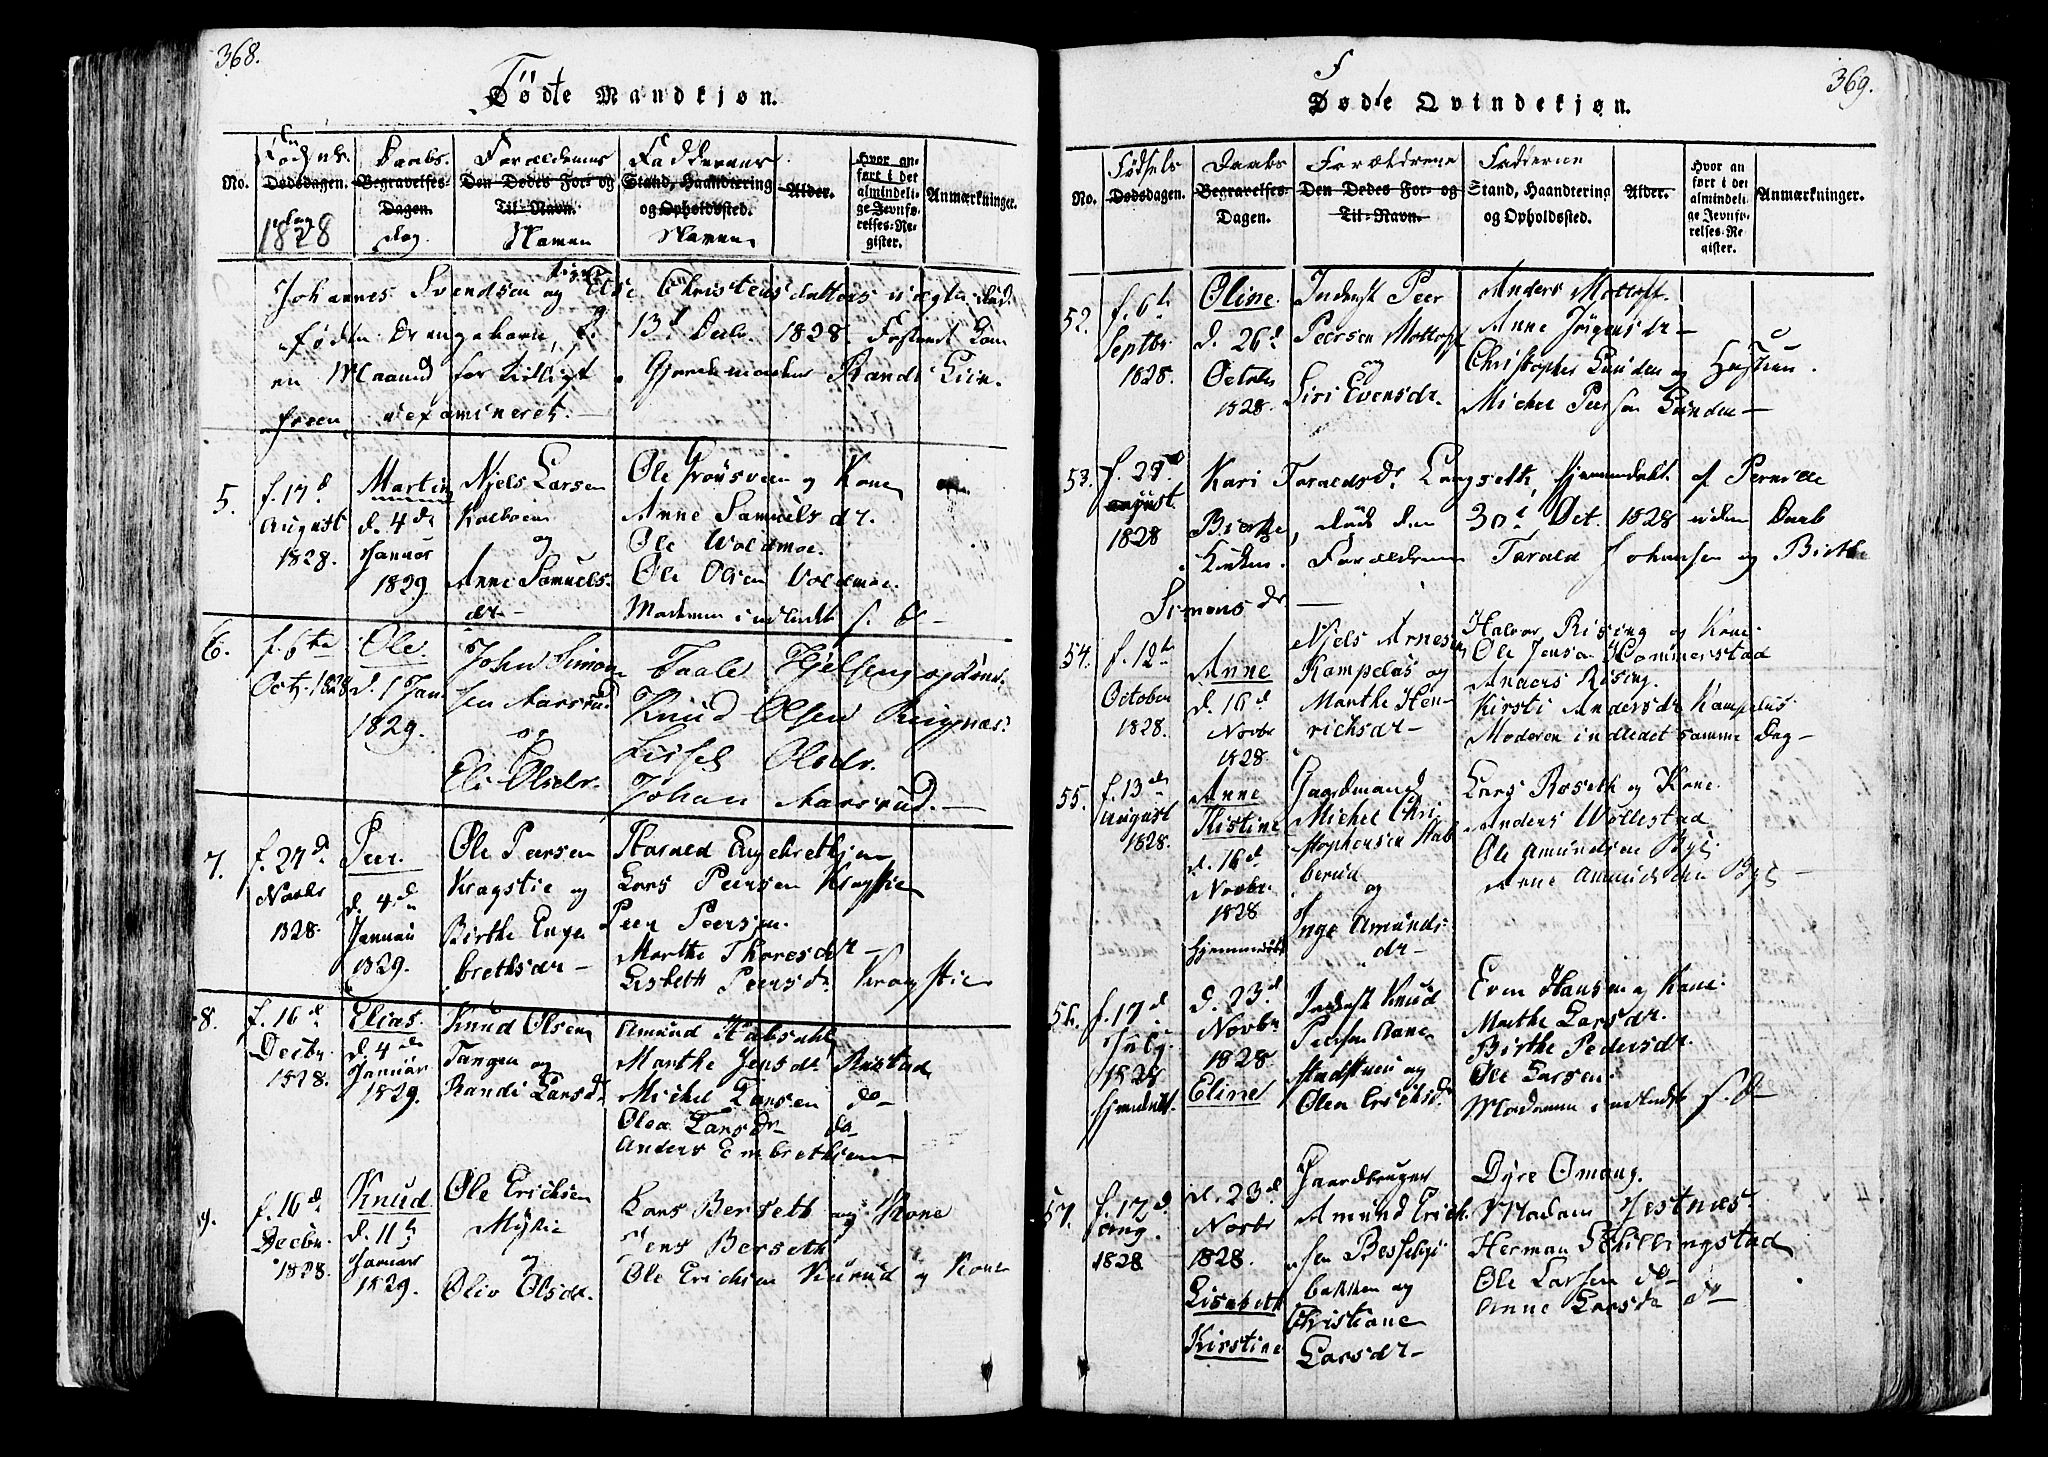 368.
Födte Mandkjøn.
No.
Dødsdagen.
1828
Daabs
Begravelses-
Dagen.
dag
Forældrenes
Den Dødes For- og
Til-Navn.
Namen
Faddernes
Stand, Haandtering
og Opholdssted.
Alder.
Hvor an-
ført i det
almindeli-
ge Jevnfø-
relses-Re-
gister.
Anmærkninger.
Johannes Svendsen og Else Christensdatters uægte
fødte Drengebarn, f. 13d Decbr 1828.
en Maaned for tidligt. Gjordemoder Randi
uexamineret.
5.
f. 17d
August
1828.
Martin
d. 4de
Januar
1829.
Niels Larsen
og
Anne Samuels-
dr-
Ole og Kone
Anne Samuelsdr.
Ole Woldmoe.
Ole Olsen Voldmoe.
Moderen indledt s. D-
6.
f. 6te
Octb. 1828
Ole
d. 1 Jan
1829.
John Simon
sen Aarsrud
og
Eli Olsdr.
Taale
Knud Olsen Ringnæs.
Lisbeth Olsdr.
Johan Aarsrud.-
7.
f. 27d
Novbr
1828.
Peer.
d. 4de
Januar
1829.
Ole Peersen
Kragstie og
Birthe Enge
brethsdr-
Harald Engebrethsen
Lars Peersen Kragstie
Peer Peersen.
Marthe Thoresdr-
Lisbeth Peersdr Kragstie
8.
f. 16d
Decbr.
1828.
Elias.
d. 4de
Januar
1829.
Knud Olsen
Tangen og
Randi Larsdr
Amund
Marthe Jensdr Rustad
Michel Larsen do-
Olea Larsdr- do-
Anders Embrethsen
9.
f. 16d
Decbr.
1828.
Knud
d. 11te
Januar
1829.
Ole Erichsen
og
Oliv Olsdr.
Lars Berseth og Kone
Jens Berseth
Ole Erichsen og Kone
369.
F
Dødte Qvindekjøn.
No.
Fødsels
Dødsdagen.
Daabs
Begravelses-
Dagen.
Forældrene
Den Dødes For- og
Til-Navn.
Fadderne
Stand, Haandtering
og Opholdssted.
Alder.
Hvor an
ført i det
almindeli
ge Jevnfø-
relses-Re-
gister.
Anmærkninger.
52.
f. 6te
Septbr.
1828.
Oline.
d. 26d
Octobr
1828.
Inderst Peer
Peersen
og
Siri Evensdr.
Anders
Anne Jörgensdr-
Christopher Lunden og Hustrue.
Michel Peersen Lunden-
53.
f. 25d
august
1828
Kari Taraldsdr Langseth, hjemmedøbt af Pernille
død den 30d Oct. 1828 uden Daab
i Kirken. Forældrene Tarald Johansen og Birthe
Simonsdr-
54.
f. 12te
October
1828.
Anne
d. 16d
Novbr
1828.
Niels Arnesen
Kampelas og
Marthe Hen-
richsdr-
Halvor Rising og Kone.
Ole Jensen Hommerstad
Anders Rising.
Kirsti Andersdr Kampelas
Moderen indledet samme Dag-
55.
f. 13de
August
1828.
Anne
Kistine
d. 16d
Novbr.
1828
hjemmedøbt
Gaardmand
Michel Chri
stophersen
berud
og
Inge Amunds-
dr-
Lars Roseth og Kone.
Anders Wollestad
Ole Amundsen Bye.
Anne Amundsdr Bye-
56.
f. 17d
July
1828
hjemdøbt.
d. 23d
Novbr
1828
Eline
Inderst Knud
Peersen
og
Olea Erichsdr.
Even Hansen og Kone.
Marthe Larsdr.
Birthe Pedersdr.
Ole Larsen.
Moderen indledt s. D-
57.
f. 17d
Aug.
1828
d. 23d
Novbr
1828.
Lisabeth
Kirstine
Gaardbruger
Amund Erich
sen
bakken og
Christiane
Larsdr-
Dyre Omang.
Madam Jestnæs.
Herman Schillingstad
Ole Larsen do-
Anne Larsdr do